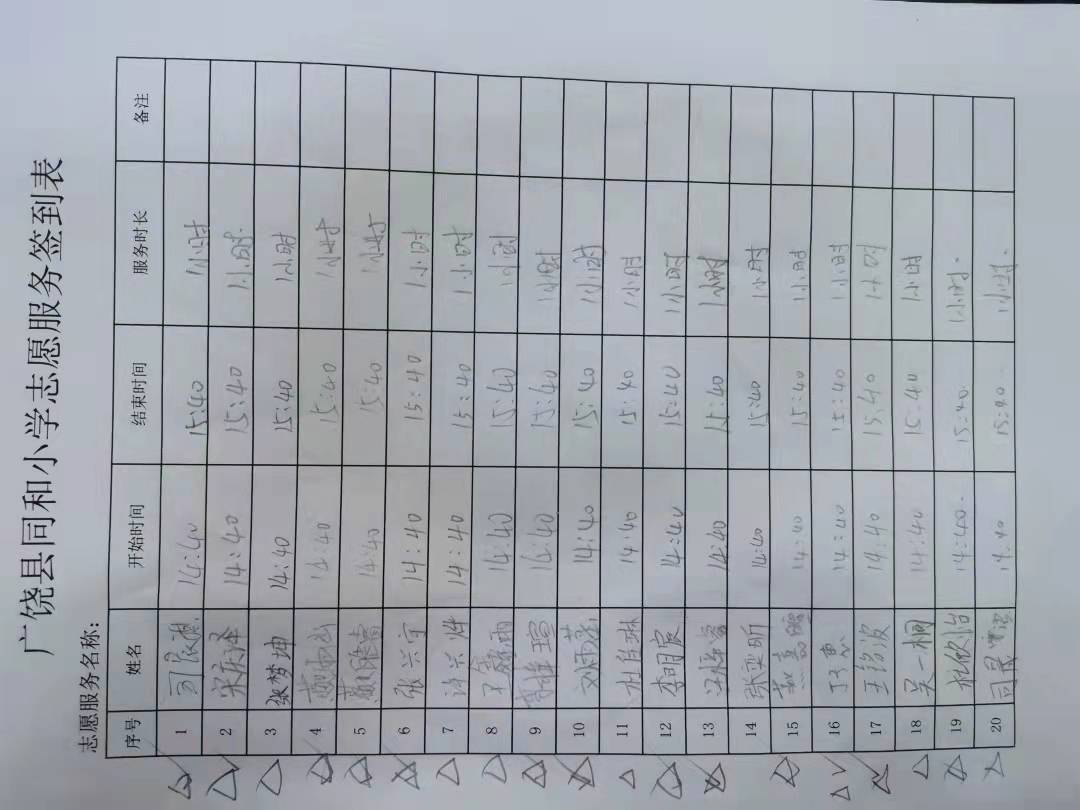 广饶县同和小学志愿服务签到表
志愿服务名称：
序号 姓名 开始时间 结束时间 服务时长 备注
1 14:40 15:40 1小时
2 14:40 15:40 1小时.
3 张梦坤 14:40 15:40 1小时
4 14:40 15:40 1小时
5 14:40 15:40 1小时
6 张兴宇 14:40 15:40 1小时
7 14:40 15:40 1小时
8 14:40 15:40 1小时
9 14:40 15:40 1小时
10 14:40 15:40 1小时
11 14:40 15:40 1小时
12 李明宸 14:40 15:40 1小时
13 14:40 15:40 1小时
14 张奕昕 14:40 15:40 1小时
15 14:40 15:40 1小时
16 14:40 15:40 1小时
17 14:40 15:40 1小时
18 吴一桐 14:40 15:40 1小时
19 杜依怡 14:40. 15:40. 1小时.
20 14:40 15:40. 1小时.